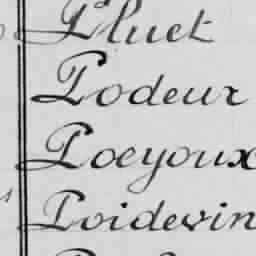 Pluet
Podeur
Poeyoux
Poidevin